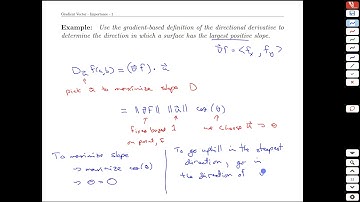 Gradient Vector - Importance - 1
Example: Use the gradient-based definition of the directional derivative to
determine the direction in which a surface has the largest positive slope.
∇f = <fx, fy>
D_u f(a,b) = (∇f) · u
pick u to maximize slope D
= ||∇f|| ||u|| cos(θ)
fixed based on point, f
1
we choose u → θ
To maximize slope
→ maximize cos(θ)
→ θ = 0
To go uphill in the steepest
direction, go in
the direction of